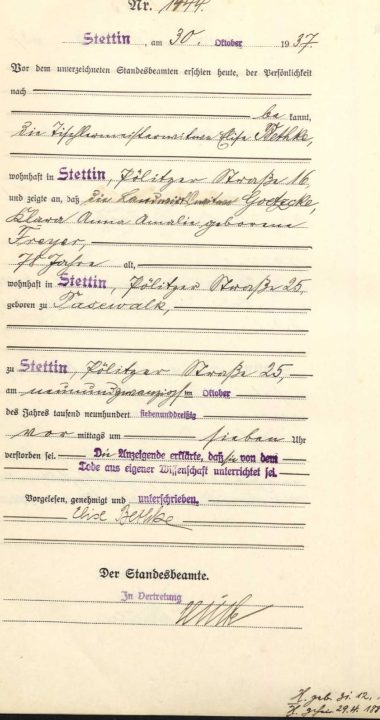 Nr. 1444.
Stettin, am 30. Oktober 1937.
Vor dem unterzeichneten Standesbeamten erschien heute, der Persönlichkeit
nach
be kannt,
die Tischlermeisterwitwe Elise Bethke,
wohnhaft in Stettin, Pölitzer Straße 16,
und zeigte an, daß die Landwirtswitwe Goetzcke,
Klara Anna Amalie geborene
Freyer,
78 Jahre alt,
wohnhaft in Stettin, Pölitzer Straße 25,
geboren zu Pasewalk,
zu Stettin, Pölitzer Straße 25,
am neunundzwanzigsten Oktober
des Jahres tausend neunhundert siebenunddreißig
vor mittags um sieben Uhr
verstorben sei. Die Anzeigende erklärte, daß sie von dem
Tode aus eigener Wissenschaft unterrichtet sei.
Vorgelesen, genehmigt und unterschrieben.
Elise Bethke
Der Standesbeamte.
In Vertretung